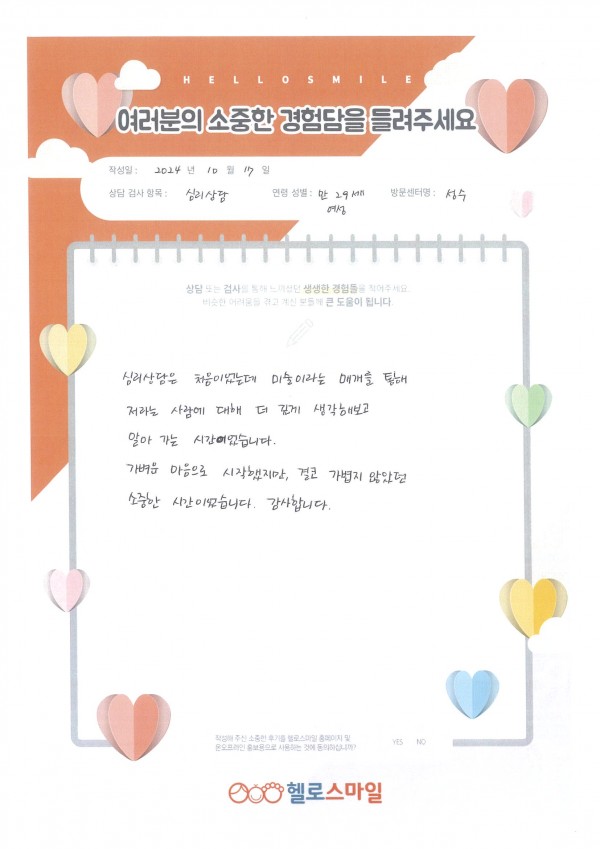 HELLOSMILE
여러분의 소중한 경험담을 들려주세요
작성일 : 2024 년 10 월 17 일
상담 검사 항목 : 심리상담 연령 성별 : 만 29세 방문센터명 : 성수
여성
상담 또는 검사를 통해 느끼셨던 생생한 경험들을 적어주세요.
비슷한 어려움을 겪고 계신 분들께 큰 도움이 됩니다.
심리상담은 처음이었는데 미술이라는 매개를 통해
저라는 사람에 대해 더 깊게 생각해보고
알아 가는 시간이었습니다.
가벼운 마음으로 시작했지만, 결코 가볍지 않았던
소중한 시간이었습니다. 감사합니다.
작성해 주신 소중한 후기를 헬로스마일 홈페이지 및
온오프라인 홍보용으로 사용하는 것에 동의하십니까? YES NO
헬로스마일